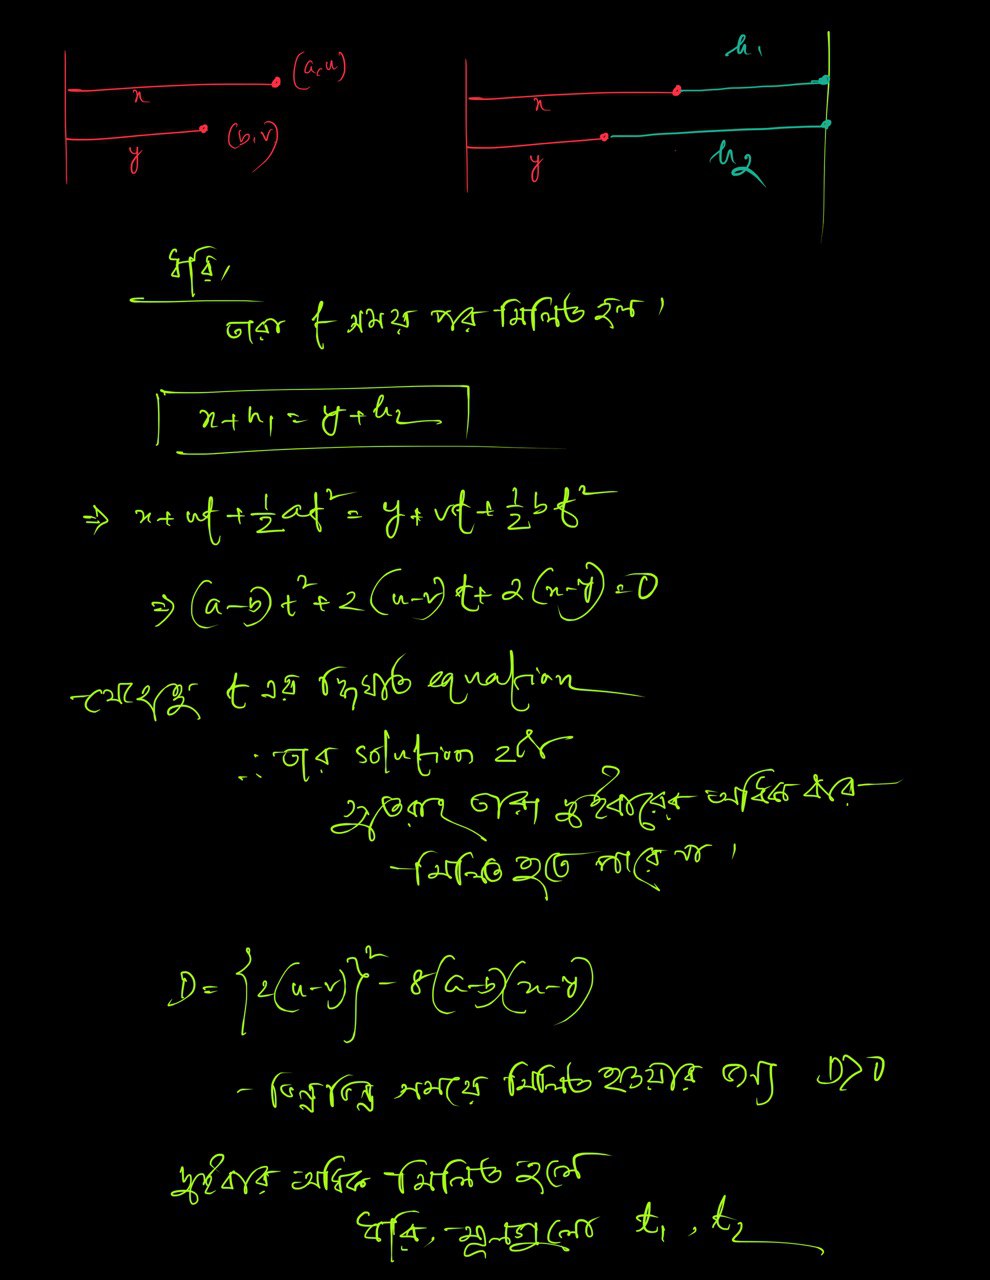 (a, u)
x
(b, v)
y
h₁
x
y
h₂
ধরি,
তারা t সময় পর মিলিত হল।
x + h₁ = y + h₂
⇒ x + ut + ½at² = y + vt + ½bt²
⇒ (a-b)t² + 2(u-v)t + 2(x-y) = 0
যেহেতু t এর দ্বিঘাত equation
∴ তার solution ২টি
সুতরাং তারা দুইবারের অধিক বার
মিলিত হতে পারে না।
D = {2(u-v)}² - 8(a-b)(x-y)
ভিন্ন ভিন্ন সময়ে মিলিত হওয়ার জন্য D>0
দুইবার অধিক মিলিত হলে
ধরি, মূলগুলো t₁, t₂